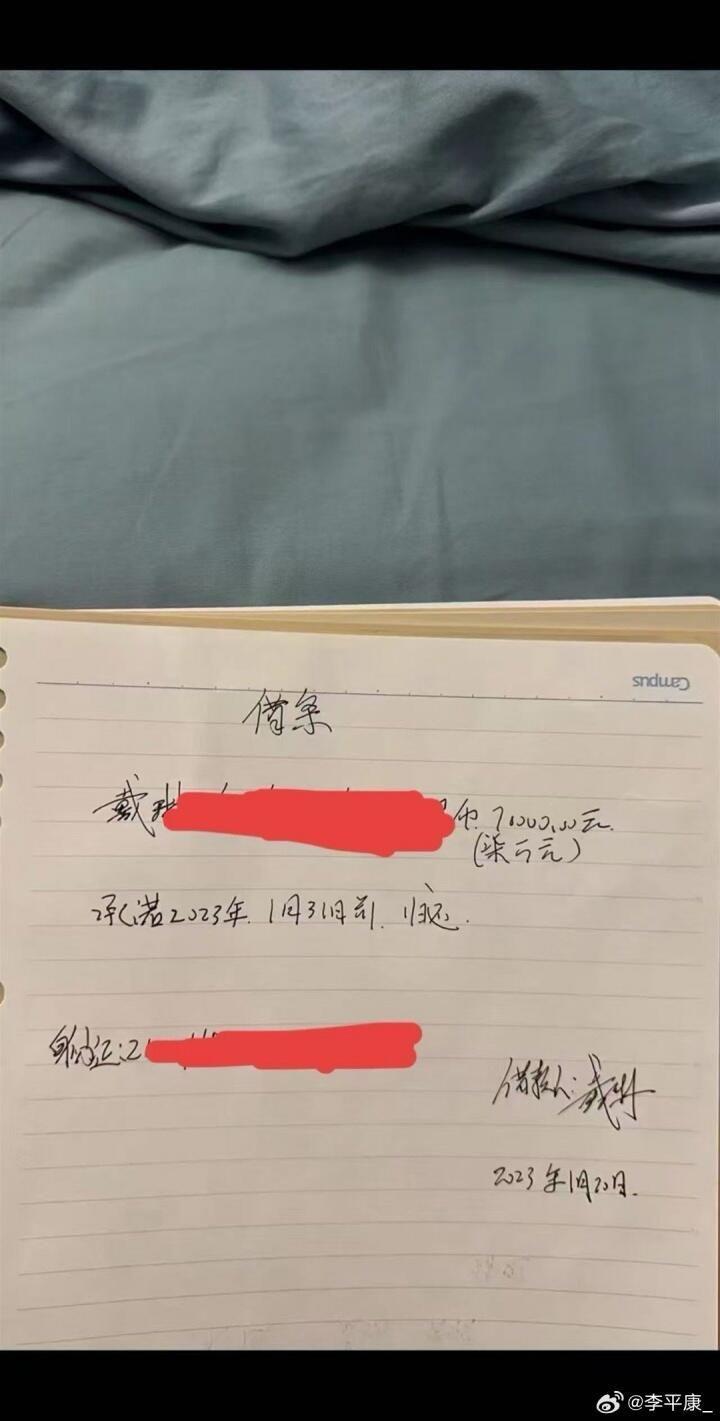 Campus
借条
戴 币 70000.00元.
(柒万元)
承诺2023年.1月31日前.归还.
身份证:2
借款人:戴琳
2023年1月20日.
@李平康_